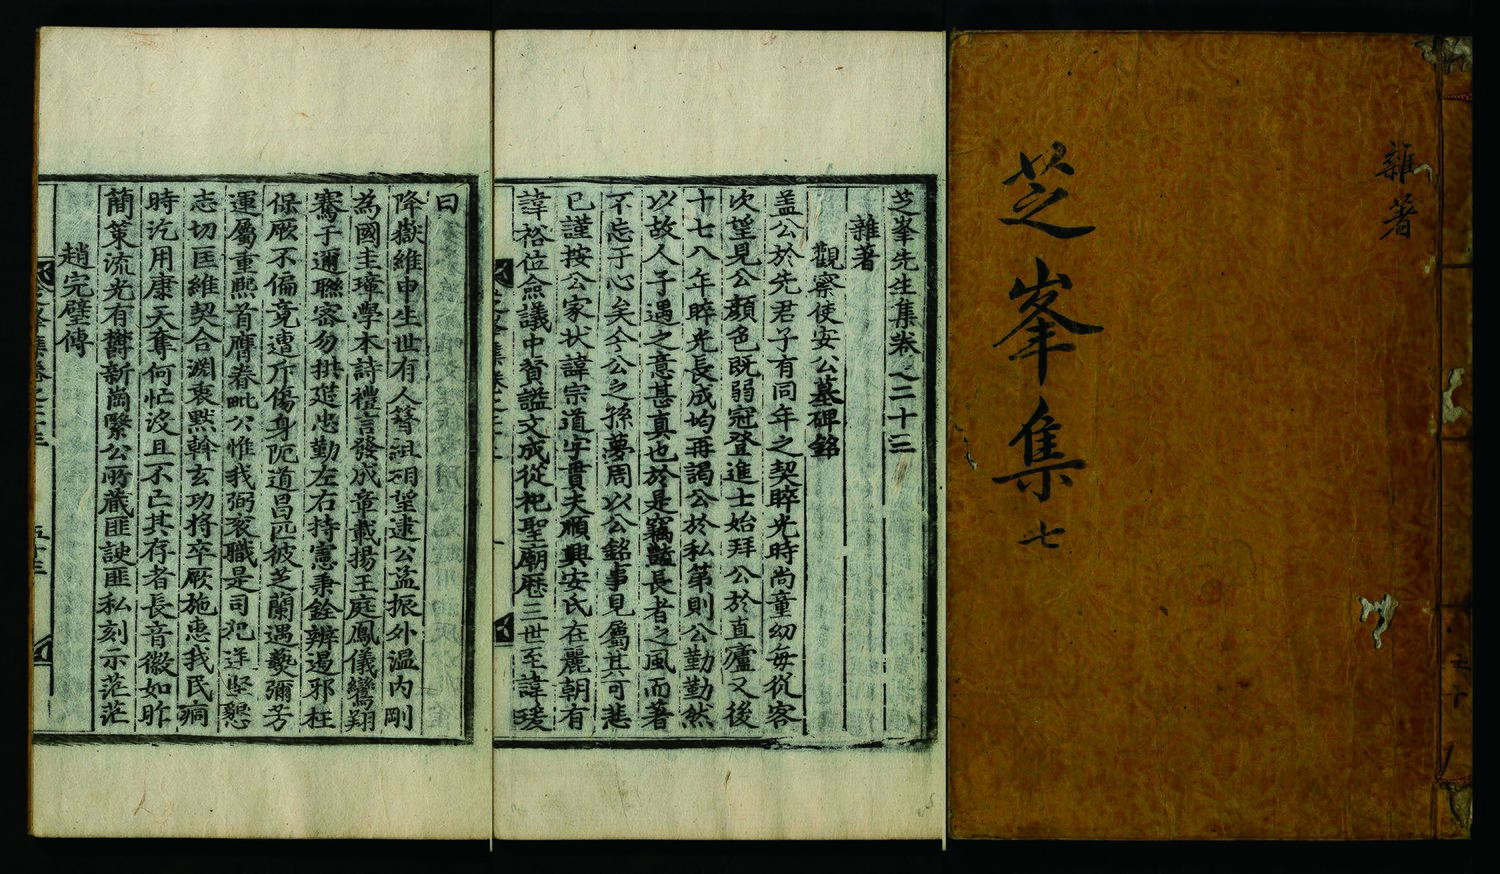 雜著
芝峯集 七
芝峯先生集卷之二十三
雜著
觀察使安公墓碑銘
盖公於先君子有同年之契睟光時尚童幼每從容
次望見公顔色旣弱冠登進士始拜公於直廬又後
十七八年睟光長成均再謁公於私第則公勤勤然
以故人子遇之意甚真也於是竊豔長者之風而著
不忘于心矣今公之孫夢周以公銘事見屬其可悲
已謹按公家状諱宗道字貫夫順興安氏在麗朝有
諱裕位僉議中賛謚文成從祀聖廟歷三世至諱瑗
曰
降嶽維申生世有人簪祖玥望逮公益振外温内剛
為國圭璋學本詩禮言發成章載揚王庭鳳儀鸞翔
騫于邇聯密勿拱莚忠勤左右持憲秉銓辨遏邪枉
保厥不偏竟遭斥傷身阨道昌匹彼芝蘭遇爇彌芳
運屬重熙首膺眷毗公惟我弼衮職是司犯逆堅懇
志切匡維契合淵衷默斡玄功将卒厥施惠我民痌
時汔用康天奪何忙沒且不亡其存者長音徽如昨
簡策流光有欝新崗繄公所蔵匪諛匪私刻示茫茫
趙完璧傳